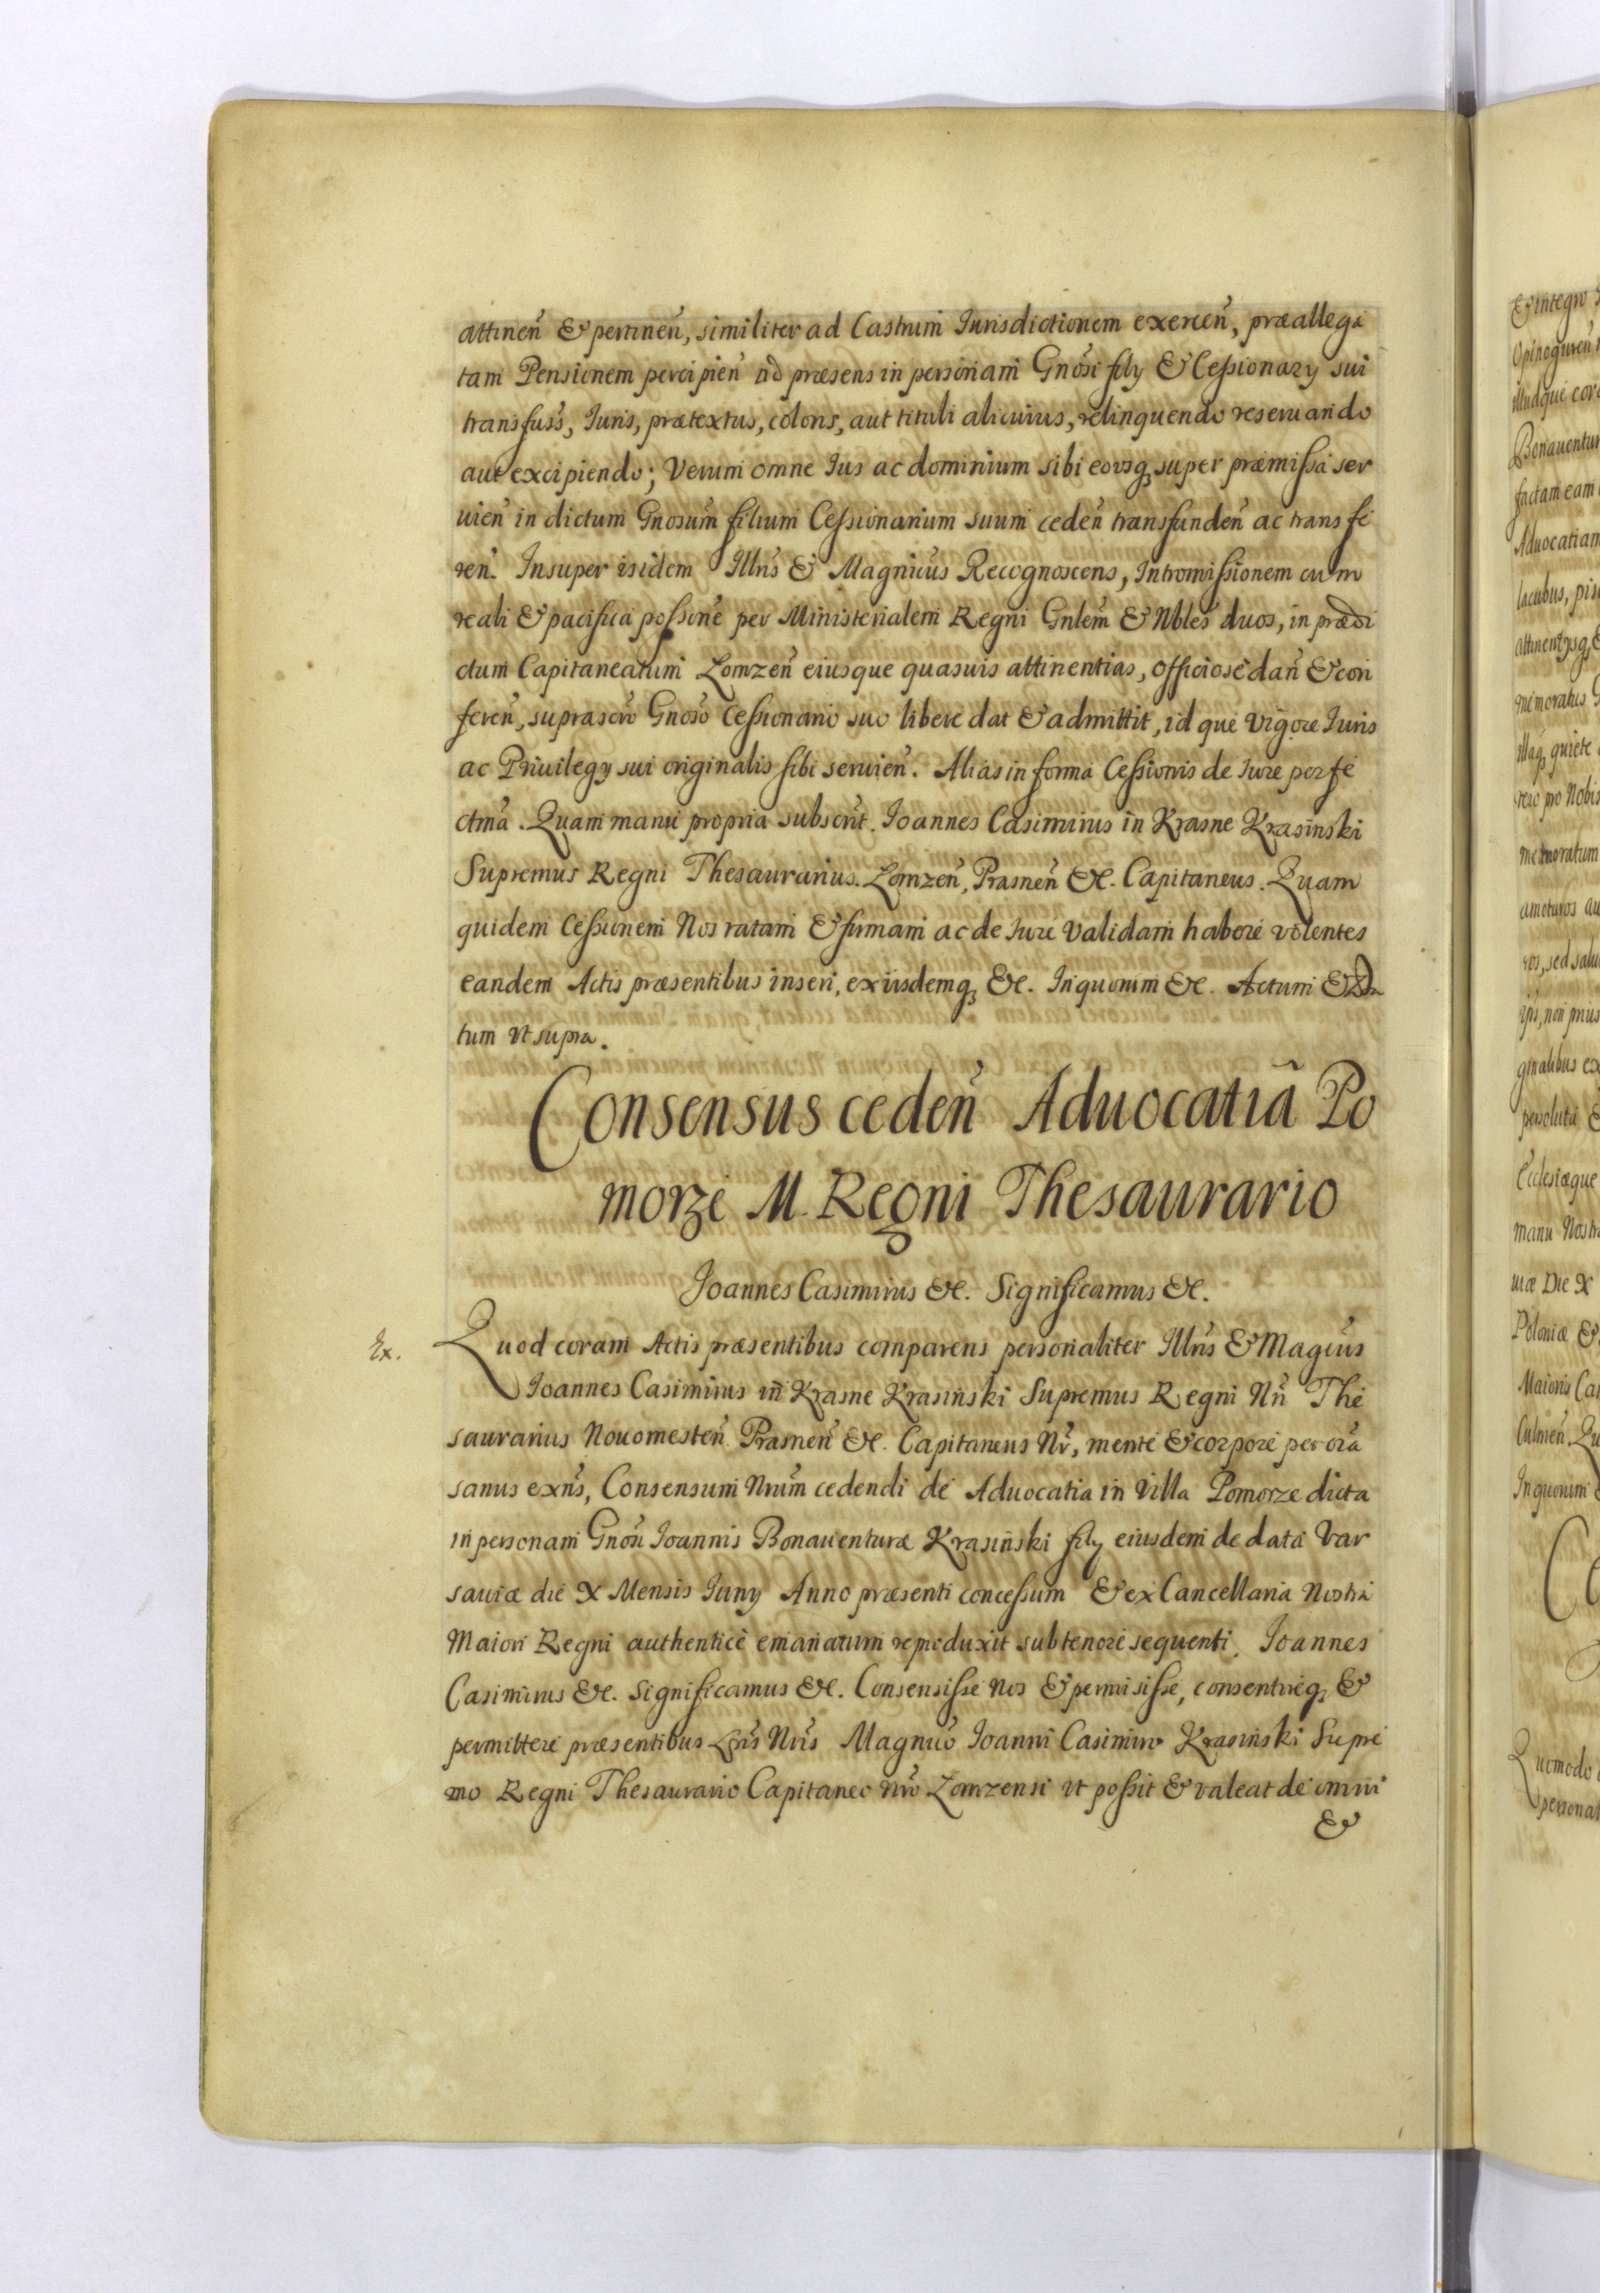 attinen̄ & pertinen̄, similiter ad Castrum Iurisdictionem exercen̄, præallega
tam Pensionem percipien̄ ad præsens in personam Gnosi filÿ & Cessionarÿ sui
transfuss, Iuris, prætextus, coloris, aut tituli alicuius, relinquendo reseruando
aut excipiendo; Verum omne Ius ac dominium sibi eousq; super præmissa ser
uien̄ in dictum Gnosum filium Cessionarium suum ceden̄ transfunden̄ ac transfe
ren̄. Insuper isidem Illris & Magnicus Recognoscens, Intromissionem cum
reali & pacifica possione per Ministerialem Regni Gnlem & Nbles duos, in prædi
ctum Capitaneatum Lomzen̄ eiusque quasuis attinentias, officiose dan̄ & con
feren̄, suprascro Gnoso Cessionario suo libere dat & admittit, id que vigore Iuris
ac Priuilegÿ sui originalis sibi seruien̄. Alias in forma Cessionis de Iure perfe
ctma. Quam manu propria subscrit. Ioannes Casimirus in Krasne Krasinski
Supremus Regni Thesaurarius. Lomzen̄, Prasnen̄ &c. Capitaneus. Quam
quidem Cessionem Nos ratam & firmam ac de Iure validam habere volentes
eandem Actis præsentibus inseri, ex iisdemq; &c. In quorum &c. Actum & Da
tum vt supra.
Consensus ceden̄ Aduocatiā Po
morze M. Regni Thesaurario
Ioannes Casimirus &c. Significamus &c.
Ex. Quod coram Actis præsentibus comparens personaliter Illris & Magcus
Ioannes Casimirus in Krasne Krasinski Supremus Regni Nri The
saurarius Nouomesten̄ Prasnen̄ &c. Capitaneus Nr, mente & corpore per ora
sanus exns, Consensum Nrum cedendi de Aduocatia in Villa Pomorze dicta
in personam Gnosi Ioannis Bonauenturæ Krasinski filÿ eiusdem de data Var
sauiæ die X Mensis Iunÿ Anno præsenti concessum & ex Cancellaria Nostra
Maiori Regni authentice emanatum reproduxit sub tenore sequenti. Ioannes
Casimirus &c. Significamus &c. Consensisse Nos & permisisse, consentireq; &
permittere præsentibus Lris Nris Magnico Ioanni Casimiro Krasinski Supre
mo Regni Thesaurario Capitaneo Nro Lomzensi vt possit & valeat de omni
&